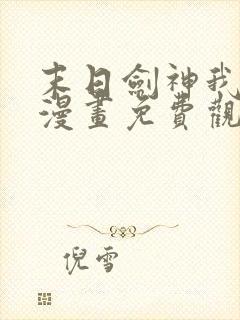 末日劍神我
漫畫免費觀
倪雪